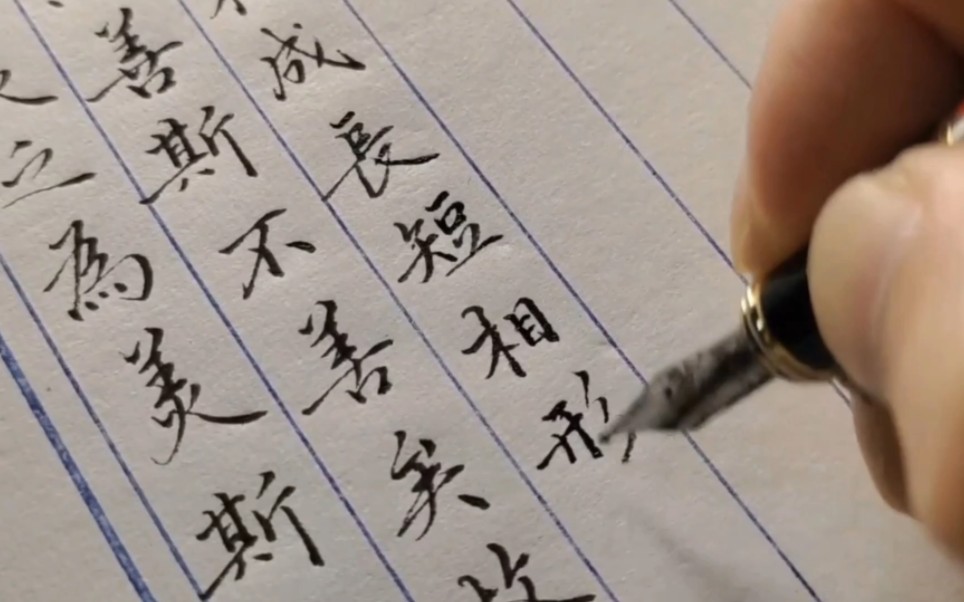 成長短相形
善斯不善矣故
之為美斯